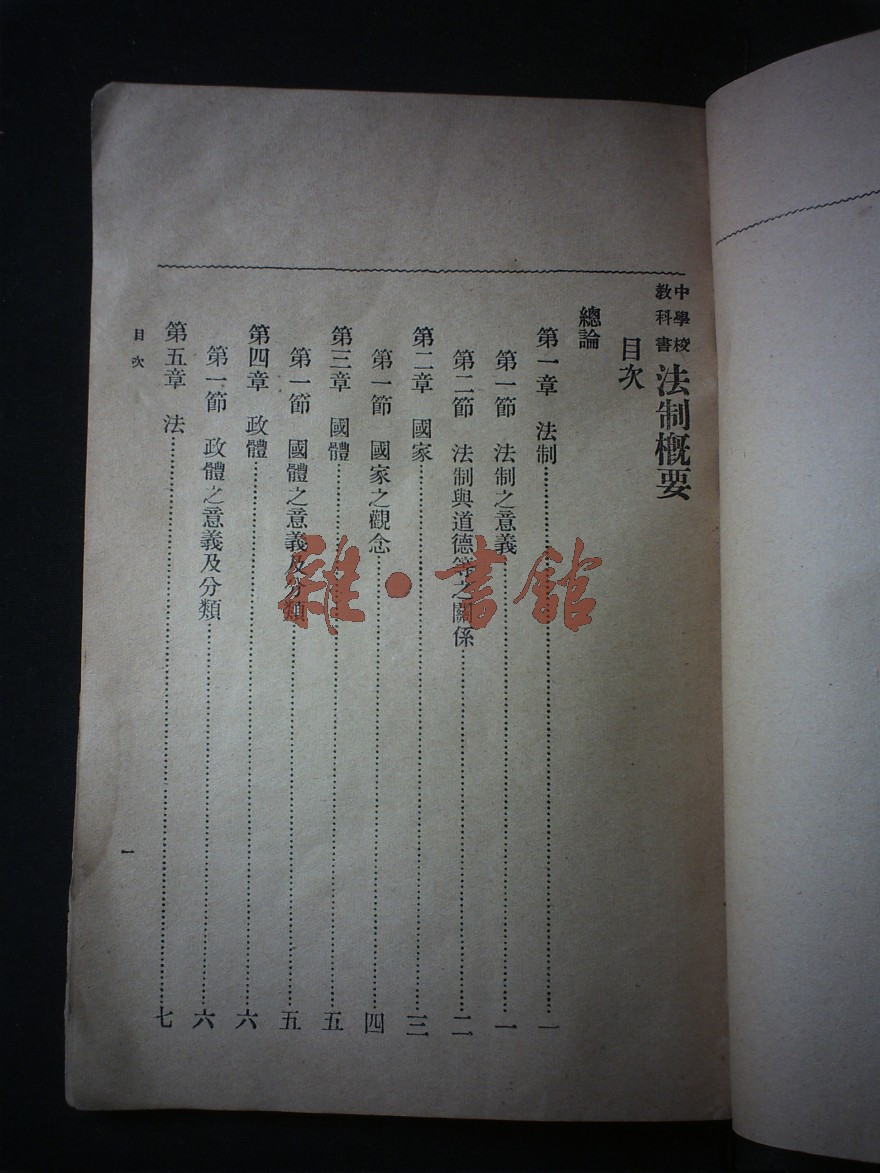 中學校
教科書
法制概要
目次
總論
第一章　法制……一
第一節　法制之意義……一
第二節　法制與道德等之關係……二
第二章　國家……三
第一節　國家之觀念……四
第三章　國體……五
第一節　國體之意義及分類……五
第四章　政體……六
第一節　政體之意義及分類……六
第五章　法……七
目次
一
雜·書館